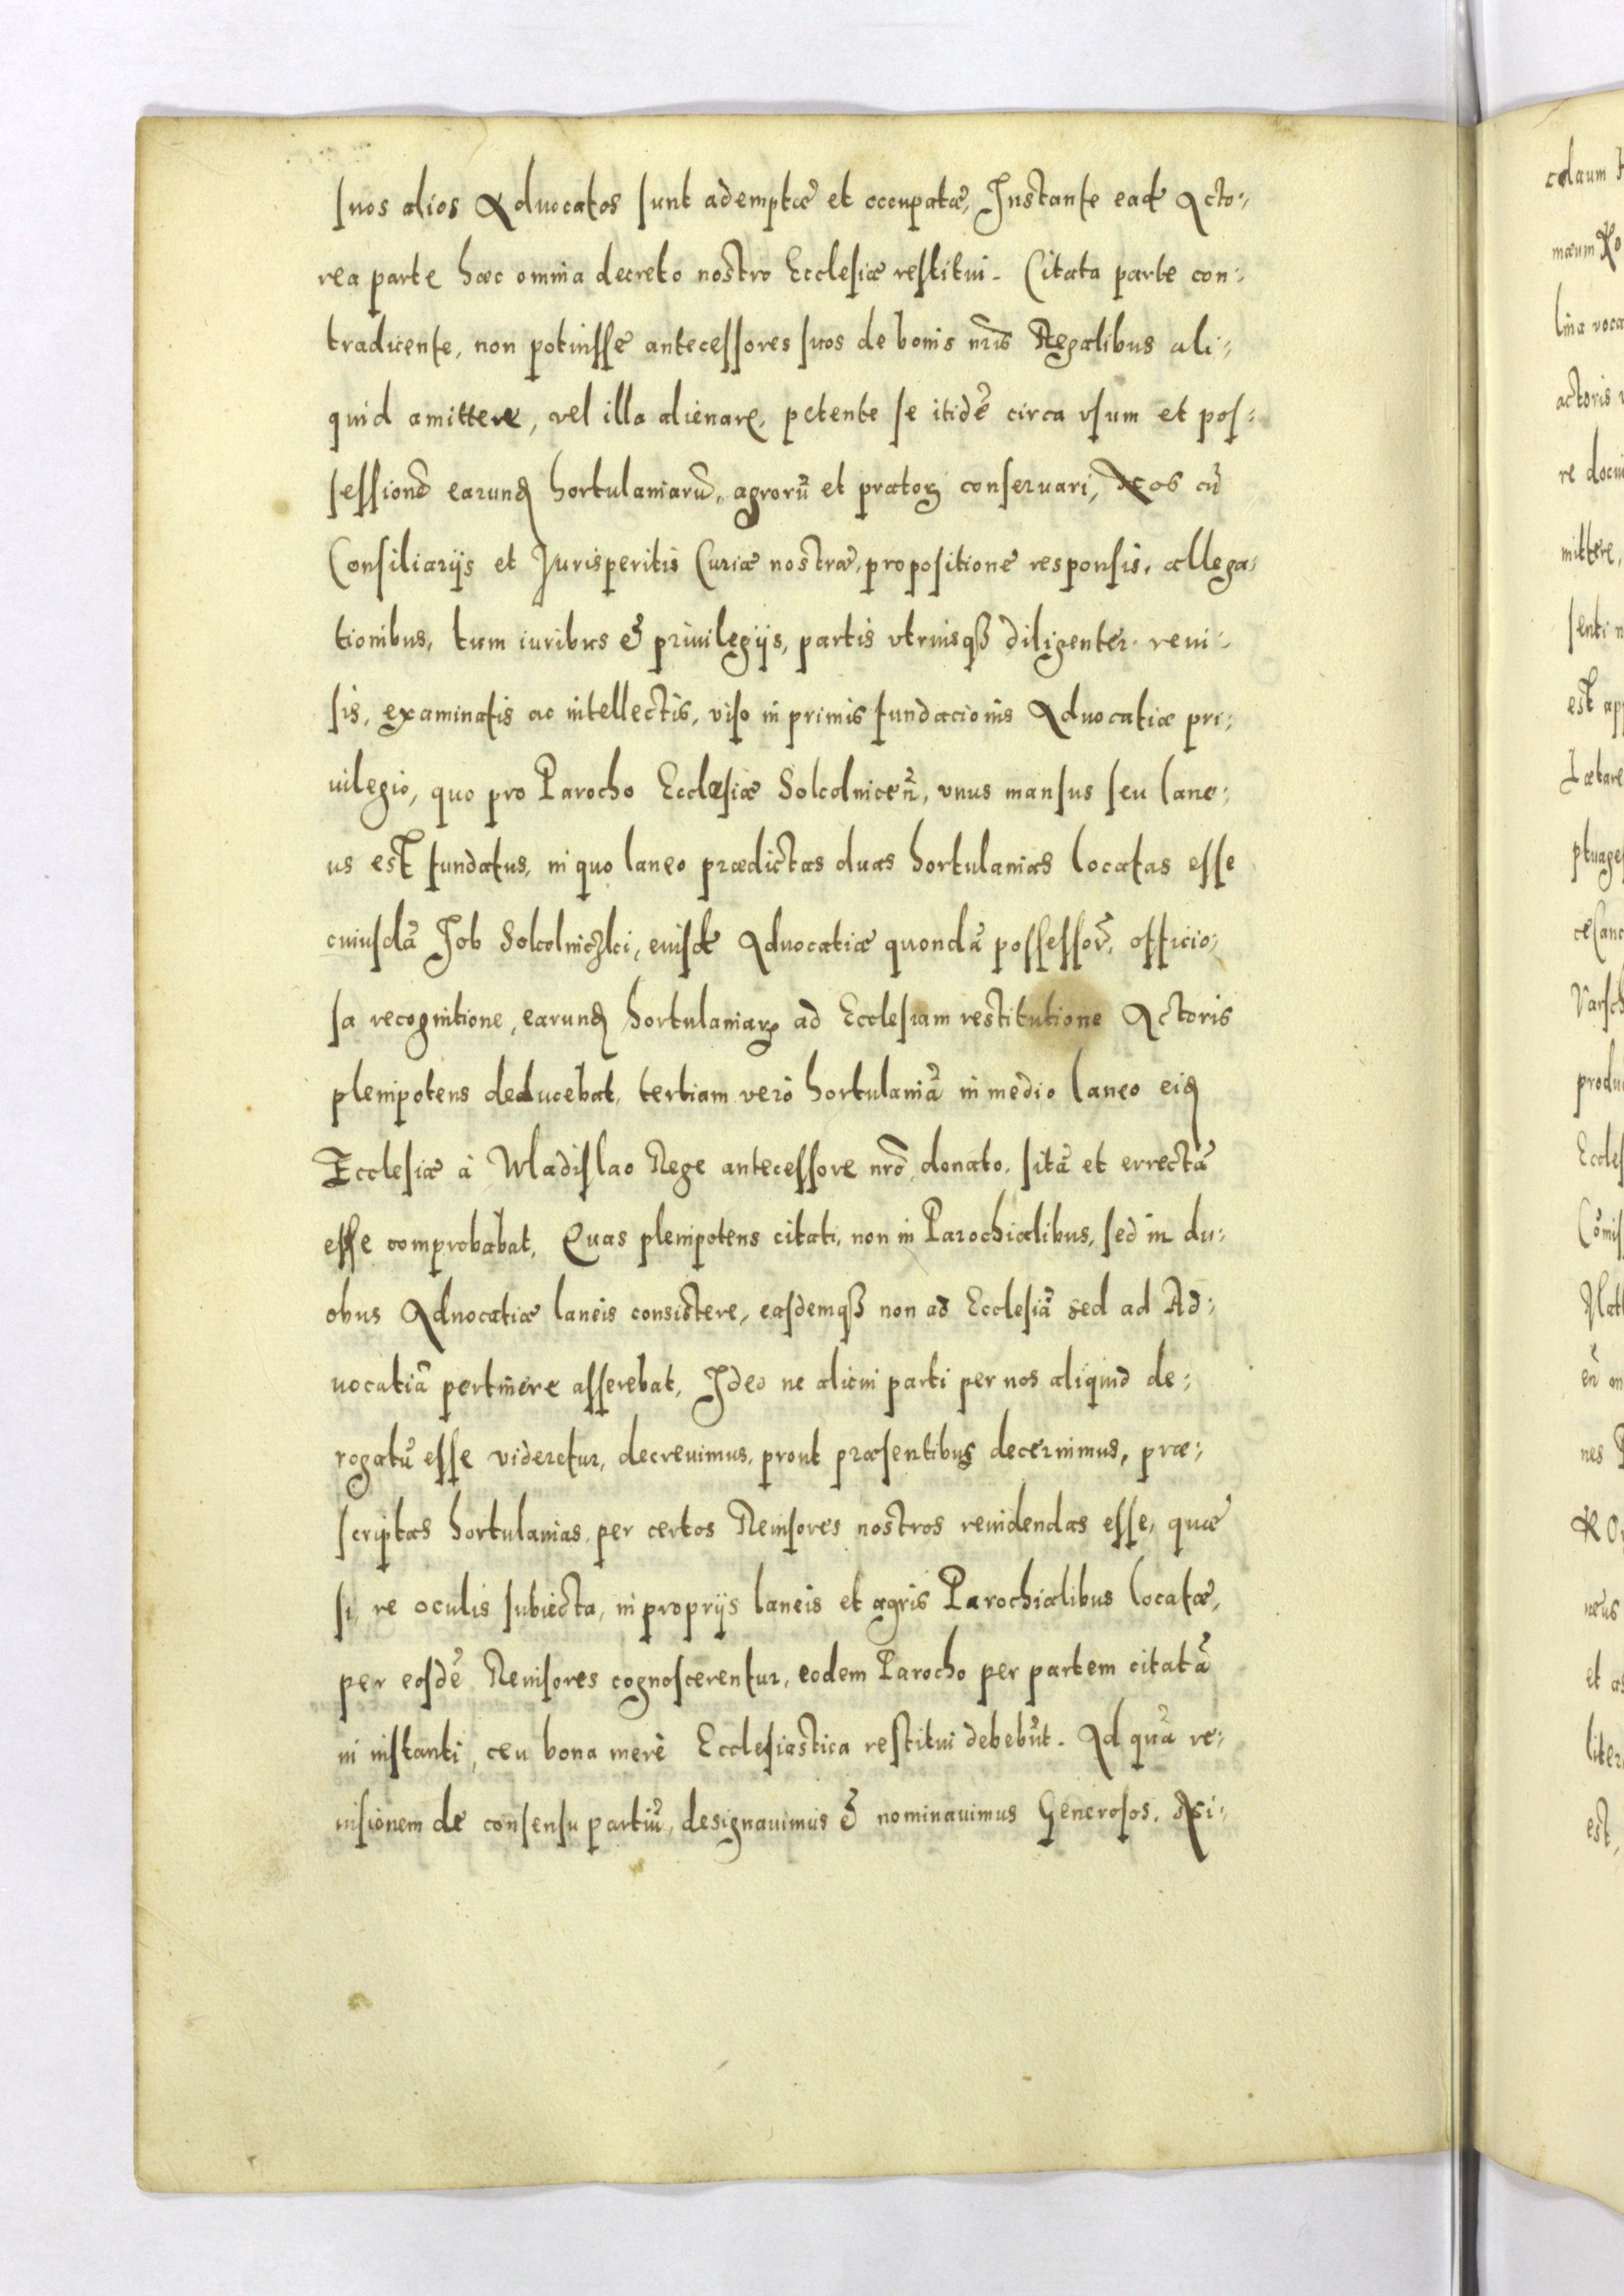 suos alios Aduocatos sunt ademptæ et occupatæ, Instante ead̃ Acto:
rea parte hæc omnia decreto nostro Ecclesiæ restitui. Citata parte con:
tradicente, non potuisse antecessores suos de bonis nr̃is Regalibus ali:
quid amittere, vel illa alienare, petente se itidē circa vsum et pos:
sessionē earund hortulaniarū, agrorū et pratorꝝ conseruari, Nos cū
Consiliarijs et Jurisperitis Curiæ nostræ, propositione responsis, allega:
tionibus, tum iuribus & priuilegijs, partis vtriusqꝫ diligenter reui:
sis, examinatis ac intellectis, viso in primis fundacionis Aduocatiæ pri:
uilegio, quo pro Parocho Ecclesiæ Solcolniceñ, vnus mansus seu lane:
us est fundatus, in quo laneo prædictas duas hortulanias locatas esse
cuiusdā Job Solcolniczki, euisd̃ Aduocatiæ quondā possessor̃, officio:
sa recognitione, earund hortulaniarꝝ ad Ecclesiam restitutione Actoris
plenipotens deducebat, tertiam verò hortulaniā in medio laneo eid
Ecclesiæ à Wladislao Rege antecessore nr̃o donato, sitā et errectā
esse comprobabat, Quas plenipotens citati, non in Parochialibus, sed in du:
obus Aduocatiæ laneis consistere, easdemqꝫ non ad Ecclesiā sed ad Ad:
uocatiā pertinere asserebat, Ideo ne alicui parti per nos aliquid de:
rogatū esse videretur, decreuimus, prout præsentibus decernimus, præ:
scriptas hortulanias per certos Reuisores nostros reuidendas esse, quæ
si, re oculis subiecta, in proprijs laneis et agris Parochialibus locatæ,
per eosdē Reuisores cognoscerentur, eodem Parocho per partem citatā
in instanti, ceu bona merè Ecclesiastica restitui debebūt. Ad quā re:
uisionem de consensu partiū, designauimus & nominauimus Generosos, Ni:
colaum
mæum
lina voca
actoris
re docu
mittere,
senti
est
Lætare